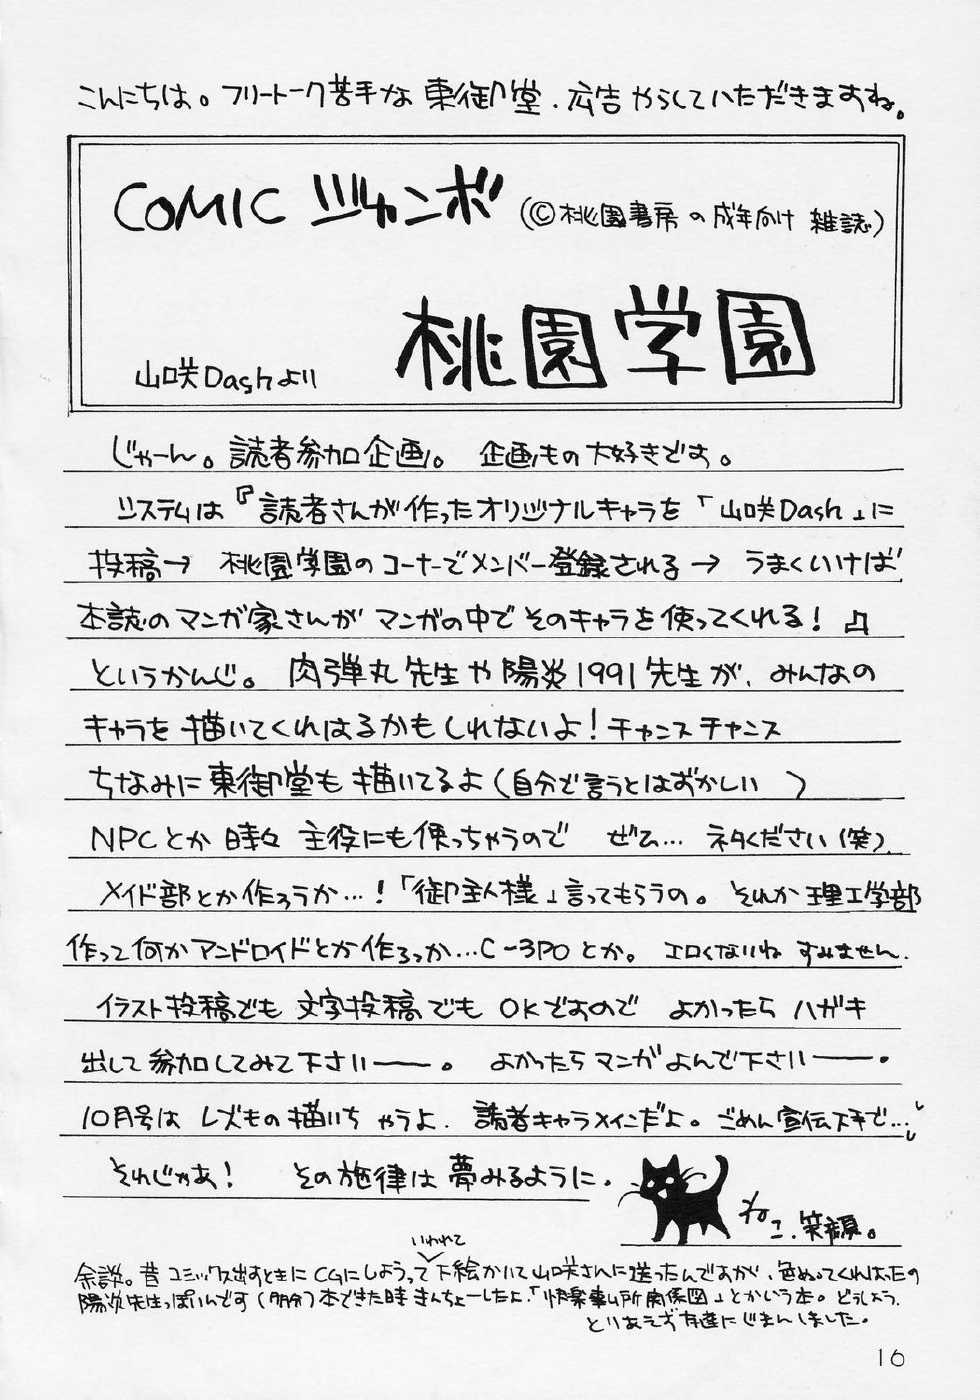 こんにちは。フリートーク苦手な東御堂、広告やらしていただきますね。
COMIC ジャンボ (©桃園書房の成年向け雑誌)
桃園学園
山咲Dashより
じゃーん。読者参加企画。企画もの大好きです。
システムは『読者さんが作ったオリジナルキャラを「山咲Dash」に
投稿→桃園学園のコーナーでメンバー登録される→うまくいけば
本誌のマンガ家さんがマンガの中でそのキャラを使ってくれる!♫
というかんじ。肉弾丸先生や陽炎1991先生が、みんなの
キャラを描いてくれはるかもしれないよ!チャンスチャンス
ちなみに東御堂も描いてるよ(自分で言うとはずかしい )
NPCとか時々主役にも使っちゃうので ぜひ…ネタください(笑)
メイド部とか作ろうか…!「御主人様」言ってもらうの。それか理工学部
作って何かアンドロイドとか作ろっか…C-3POとか。エロくないね すみません.
イラスト投稿でも文字投稿でもOKですので よかったらハガキ
出して参加してみて下さいーー。よかったらマンガよんで下さいーー.
10月号はレズもの描いちゃうよ.読者キャラメインだよ。ごめん宣伝下手で…
それじゃあ! その旋律は夢みるように.
ねこ.笑顔。
いわれて
余談。昔コミックス出すときにCGにしようって下絵かいて山咲さんに送ったんですが、色ぬってくれはったの
陽次先生っぽいんです(多分)本できた時きんちょーしたよ.「快楽事ム所関係図」とかいう本。どうしよう.
とりあえず友達にじまんしました。
16